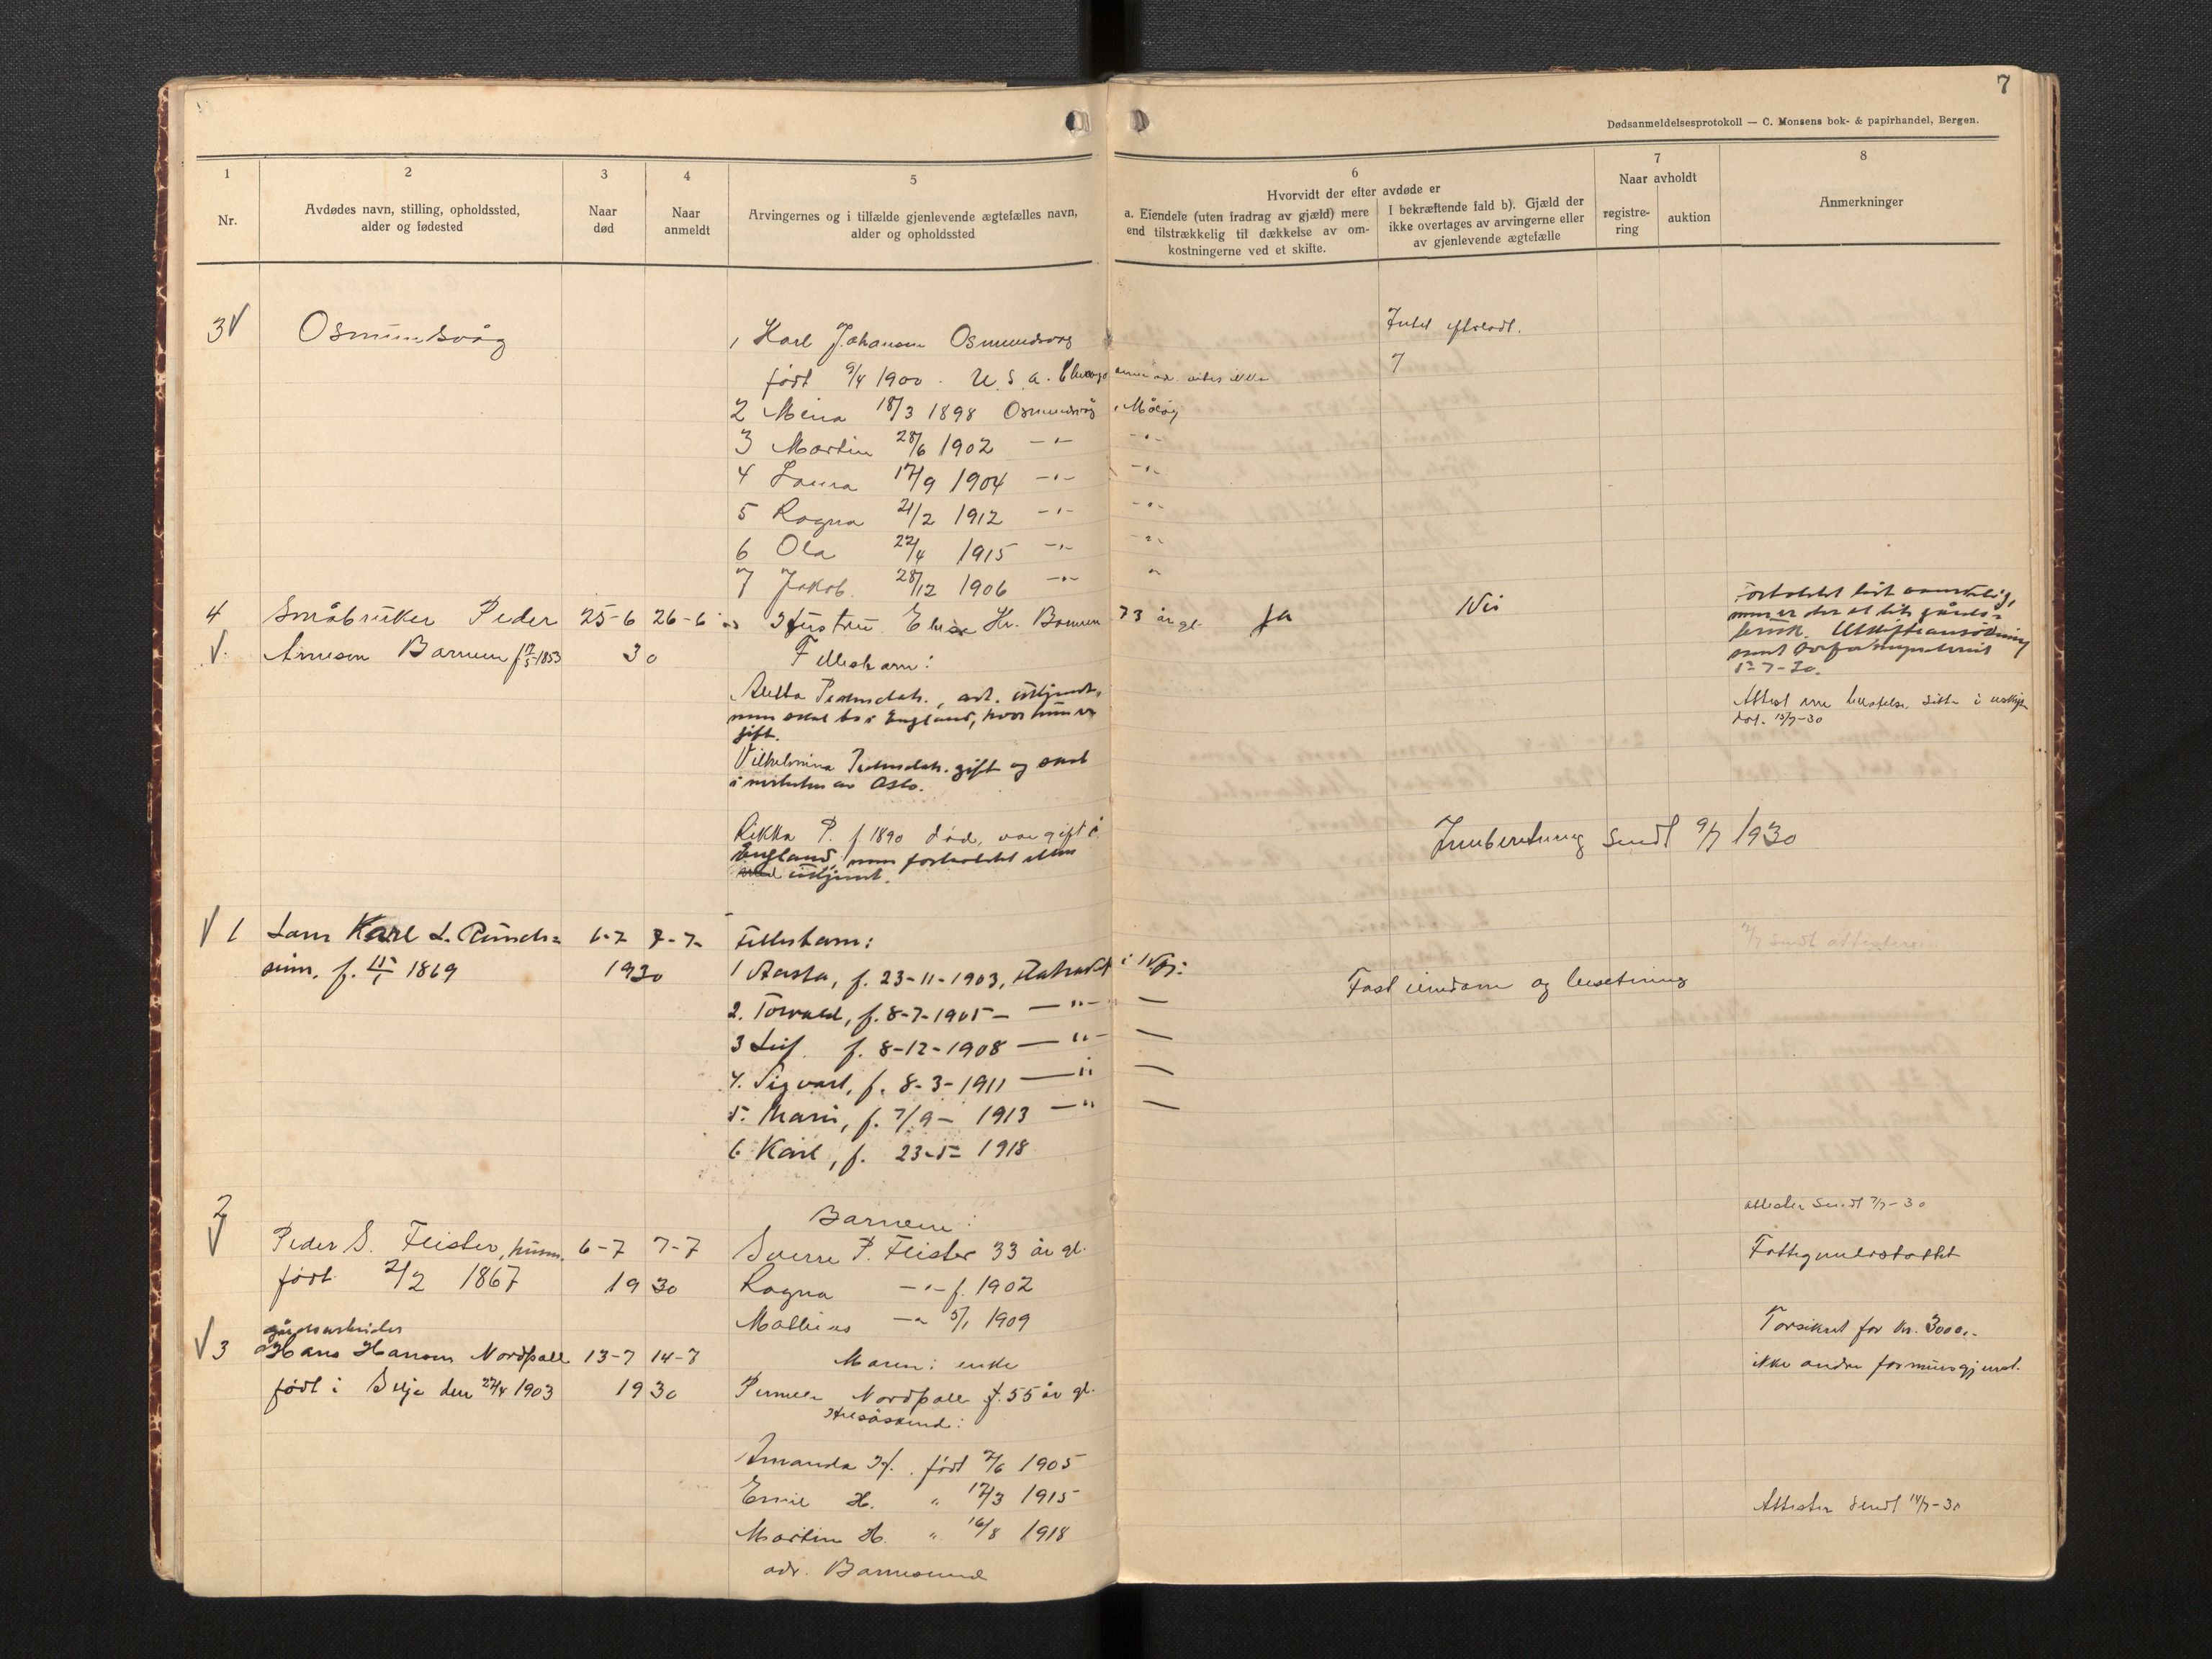 7
Dødsanmeldelsesprotokoll — C. Monsens bok- & papirhandel, Bergen.
1
Nr.
2
Avdødes navn, stilling, opholdssted,
alder og fødested
3
Naar
død
4
Naar
anmeldt
5
Arvingernes og i tilfælde gjenlevende ægtefælles navn,
alder og opholdssted
6
Hvorvidt der efter avdøde er
a. Eiendele (uten fradrag av gjæld) mere
end tilstrækkelig til dækkelse av om-
kostningerne ved et skifte.
I bekræftende fald b). Gjæld der
ikke overtages av arvingerne eller
av gjenlevende ægtefælle
7
Naar avholdt
registre-
ring
auktion
8
Anmerkninger
3 √ Osmundsvåg
1 Karl Johansen Osmundsvag
født 9/4 1900 . U. S. A. Chicago
2 Mina 18/3 1898 Osmundsvåg, Måløy
3 Martin 28/6 1902 -"- -"-
4 Laura 17/9 1904 -"- -"-
5 Ragna 21/2 1912 -"- -"-
6 Ola 22/4 1915 -"- -"-
7 Jakob. 28/12 1906 -"- "
Intet efterladt.
7
4 Småbruker Peder 25-6 26-6 Hustru. Elise Hr. Barmen 73 år gl. Ja Nei
√ Arnesen Barmen f 17/5 1853 30 Fellesbarn:
Aletta Pedersdatr., adr. ukjendt,
men skal bo i England, hvor hun er
gift.
Vilhelmina Pedersdatr. gift og skal
i nærheten av Oslo.
Rikka P. f 1890 død, var gift i
England, men forholdet ellers
ukjent.
Forholdet
Utskiftsansökning
5-7-30.
Attest
15/7-30
Innberetning sendt 9/7 1930
√ 1 Karl L. 6-7 7-7- Fellesbarn:
f. 15/1 1869 1930 1 Aasta, f. 23-11-1903,
2. Torvald, f. 8-7-1905 — " — —
3 Leif. f. 8-12-1908 — " — —
4. Sigvart, f. 8-3-1911 — " —
5. Marie, f. 7/9 - 1913 — " —
6 Karl, f. 23-5- 1918
Fast eiendom og besetning
2
√ Peder S. Feister, 6-7 7-7
født 2/2 1867 19 30
Barnene:
Sverre P. Feister 33 år gl.
Ragna -"- f. 1902
Mathias -"- 5/1 1909
Attester sendt 7/7-30
Fattigunderstøttet
gårdsarbeider
√ 3 Hans Hansen Nordpoll 13-7 14-7
født i Selje den 27/4 1903 19 30
Moren: enke
Pernella Nordpoll f. 55 år gl.
Helsøskend:
Amanda H. født 2/6 1905
Emil H. " 12/3 1915
Martin H. " 16/8 1918
adr. Barmesund
Forsikret for kr. 3000,-
ikke andre
Attester sendt 14/7-30